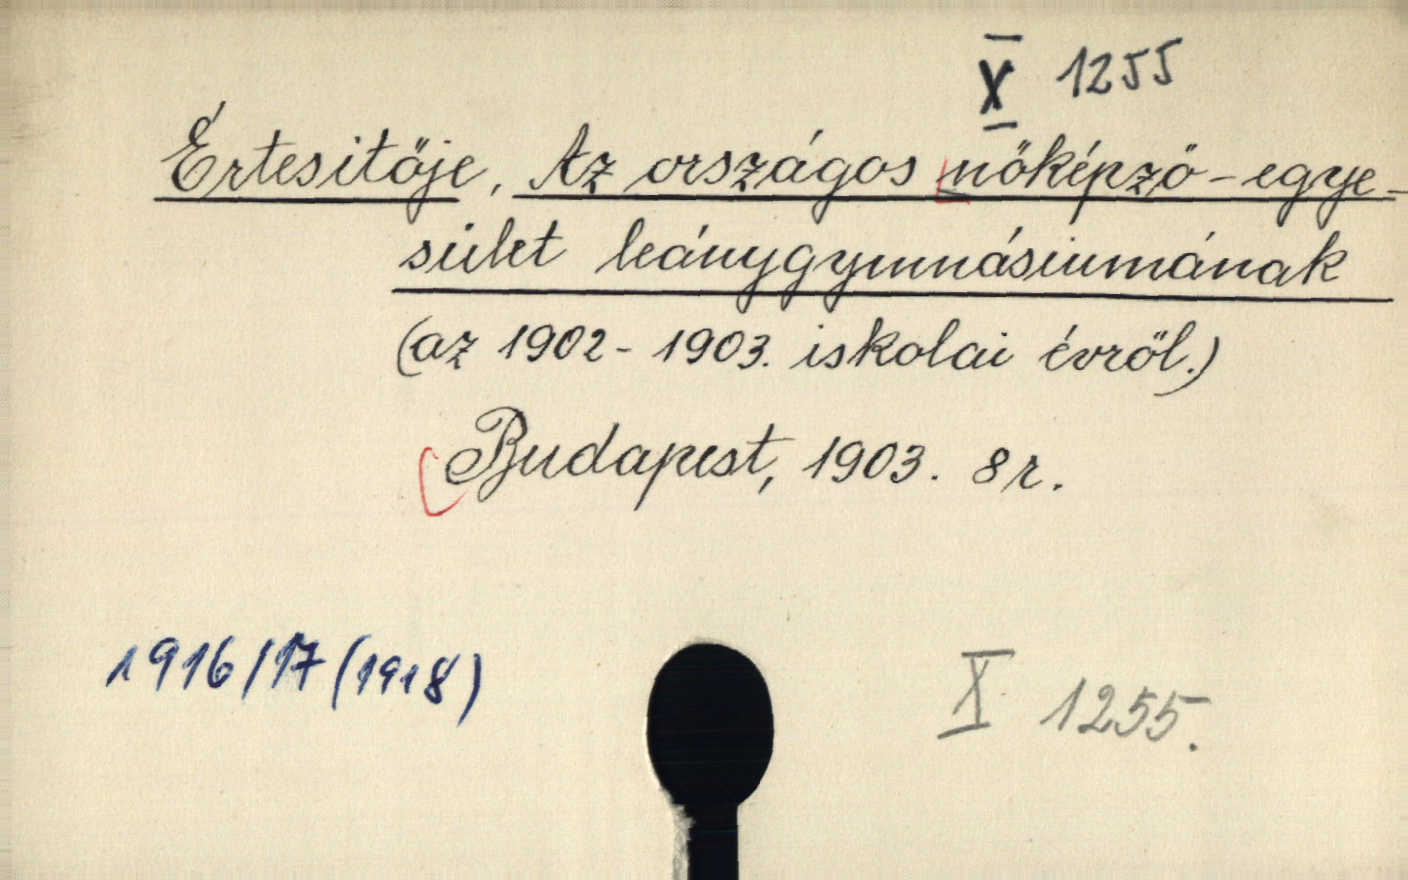 X 1255
Értesitője, Az országos nőképző-egye-
sület leánygymnásiumának
(az 1902-1903. iskolai évről.)
Budapest, 1903. 8r.
1916/17 (1918)
X 1255.